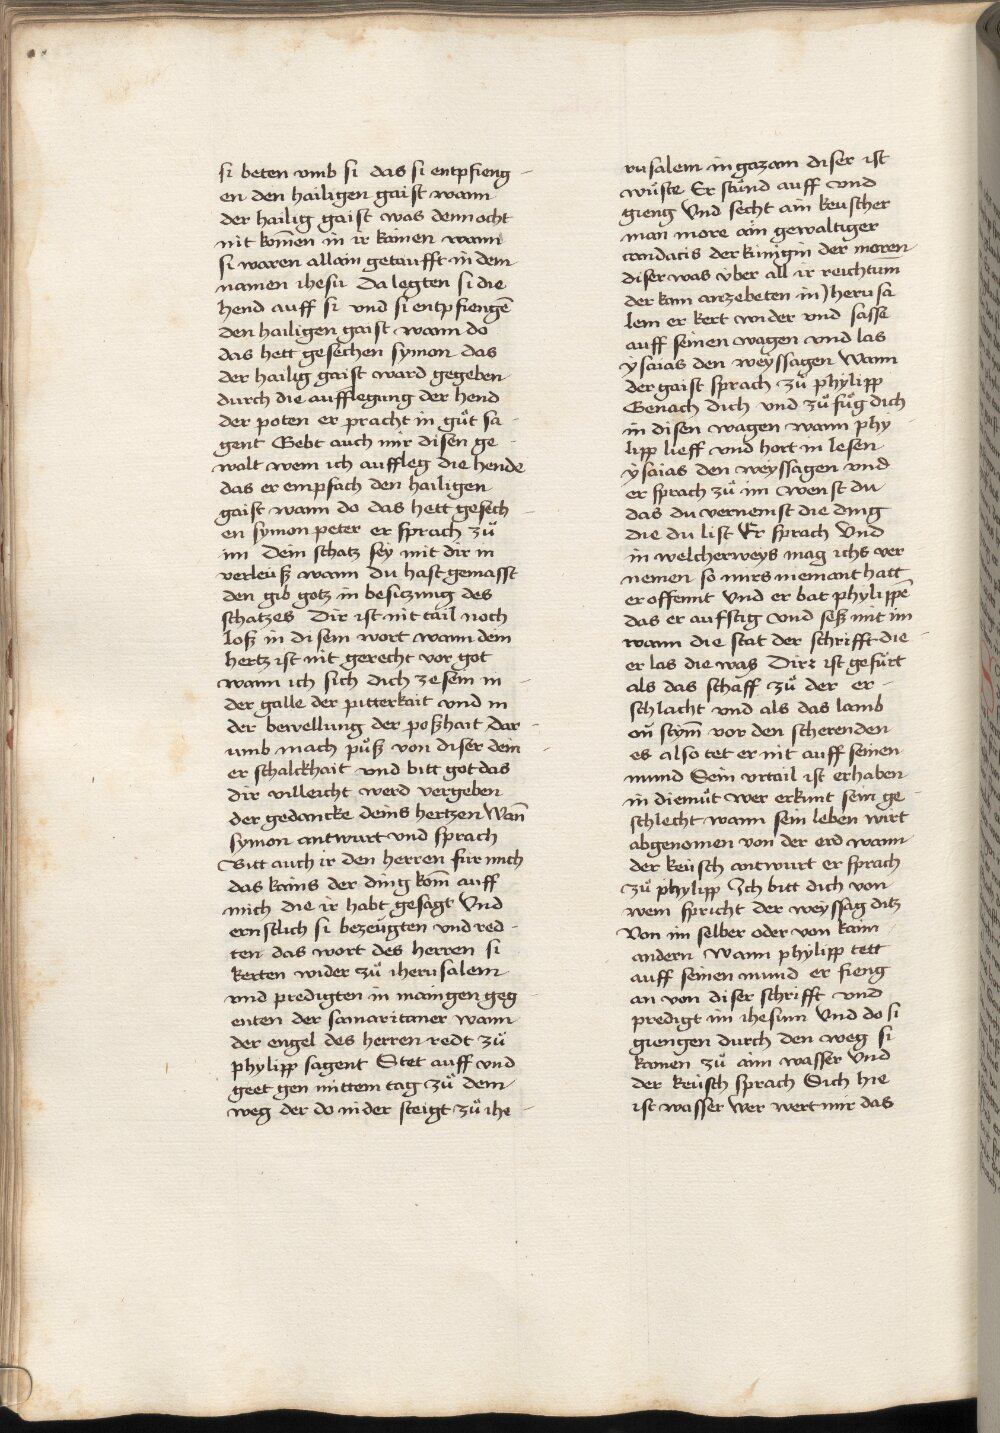 si beten vmb si das si entpfieng-
en den hailigen gaist wann
der hailig gaist was dennocht
nit kom̄en in ir kainen wann
si waren allain getaufft in dem
namen ihesu Da legten si die
hend auff si vnd si entpfiengē
den hailigen gaist wann do
das hett gesechen symon das
der hailig gaist ward gegeben
durch die aufflegung der hend
der poten er pracht in gůt sa-
gent Gebt auch mir disen ge-
walt wem ich auffleg die hende
das er empfach den hailigen
gaist wann do das hett gesech-
en symon peter er sprach zů
im Dein schatz sey mit dir in
verleuß wann du hast gemasst
den gib gotz in besiczung des
schatzes Dir ist nit tail noch
loß in disem wort wann dem
hertz ist nit gerecht vor got
wann ich sich dich ze sein in-
der galle der pitterkait vnd in
der bewellung der poßhait Dar-
umb mach půß von diser dein-
er schalckhait vnd bitt got das
dir villeicht werd vergeben
der gedancke deins hertzen Wan̄
symon antwurt vnd sprach
Bitt auch ir den herren für mich
das kains der ding kom̄ auff
mich die ir habt gesagt Vnd
ernstlich si bezeügten vnd red-
ten das wort des herren si
kerten wider zů iherusalem
vnd predigten in maingen geg-
enten der samaritaner wann
der engel des herren redt zů
phylipp sagent Stet auff vnd
geet gen mittem tag zů dem
weg der do nider steigt zů ihe-
rusalem in gazam diser ist
wüste Er stůnd auff vnd
gieng Vnd secht ain keuscher
man more ain gewaltiger
candacis der künigin der moren
diser was über all ir reichtum̄
der kam anzebeten in Jherusa
lem er kert wider vnd sasse
auff seinen wagen vnd las
ysaias den weyssagen Wann
der gaist sprach zů phylipp
Genach dich vnd zů fůg dich
in disen wagen wann phy
lipp lieff vnd hort in lesen
ysaias den weyssagen vnd
er sprach zů im wenst du
das du vernemst die ding
die du list Er sprach Vnd
in welcherweys mag ichs ver
nemen so mirs niemant hatt
eroffennt Vnd er bat phylippē
das er aufstig vnd seß mit im
wann die stat der schrifft die-
er las die was Dirr ist gefürt
als das schaff zů der er-
schlacht vnd als das lamb
on̄ stym̄ vor den scherenden
es also tet er nit auff seinen
mund Sein vrtail ist erhaben
in diemůt wer erkint sein ge-
schlecht wann sein leben wirt
abgenomen von der erd wann
der keüsch antwurt er sprach
zů phylipp Ich bitt dich von
wem spricht der weyssag ditz
Von im selber oder von kaim
andern Wann phylipp tett
auff seinen mund er fieng
an von diser schrifft vnd
predigt im ihesum Vnd do si
giengen durch den weg si
komen zů aim wasser Vnd
der keüsch sprach Sich hie
ist wasser wer wert mir das